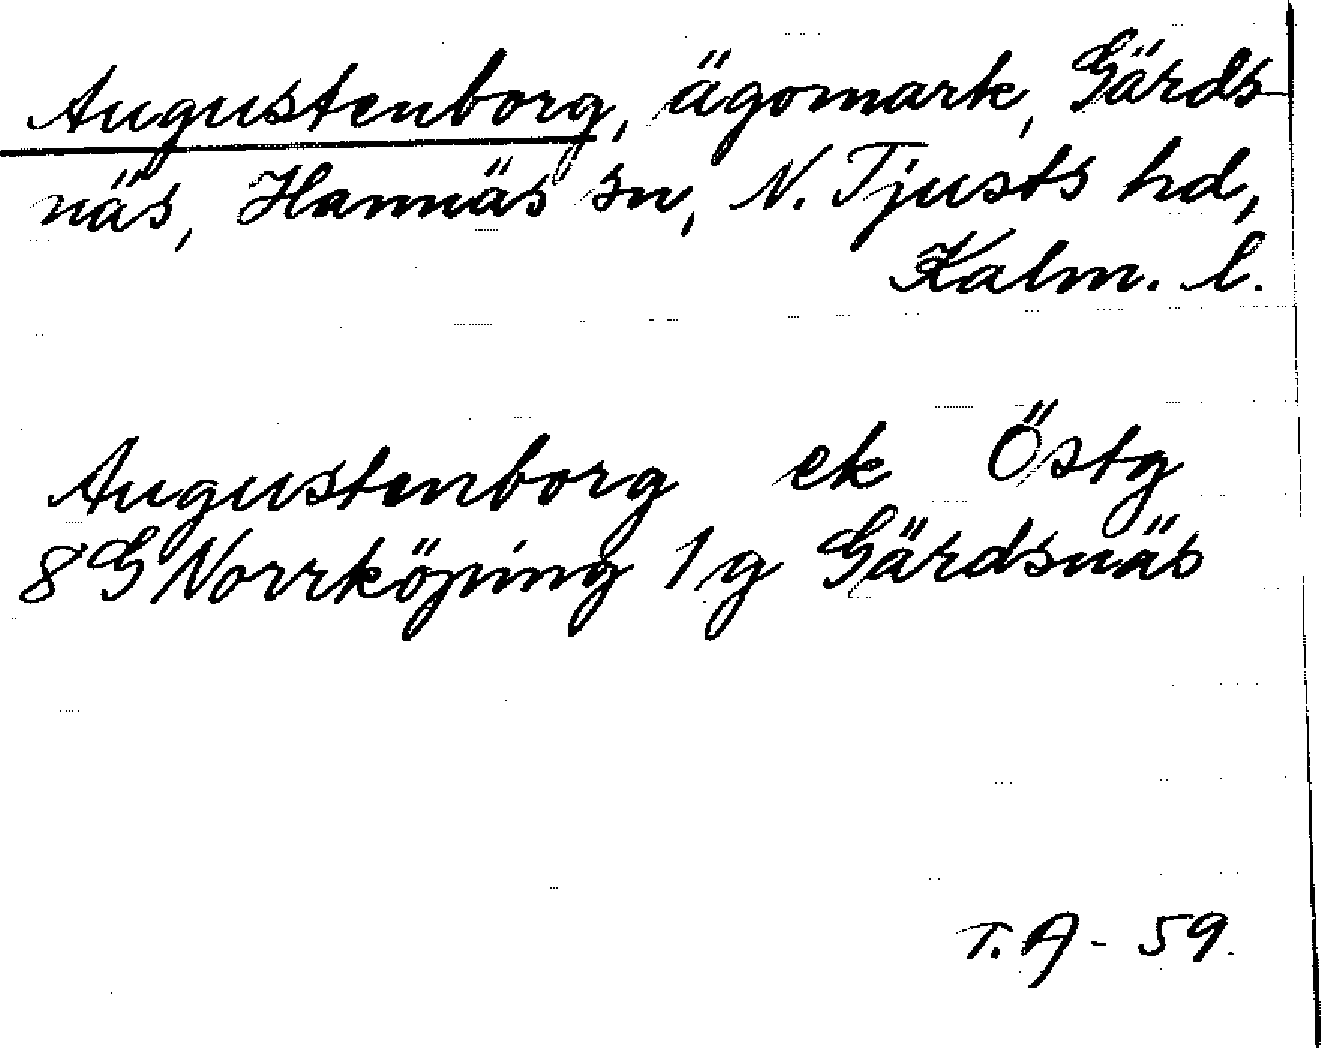 Augustenborg, ägomark, Gärds-
näs, Hannäs sn, N. Tjusts hd,
Kalm. l.
Augustenborg ek Östg
8G Norrköping 1g Gärdsnäs
T.A - 59.